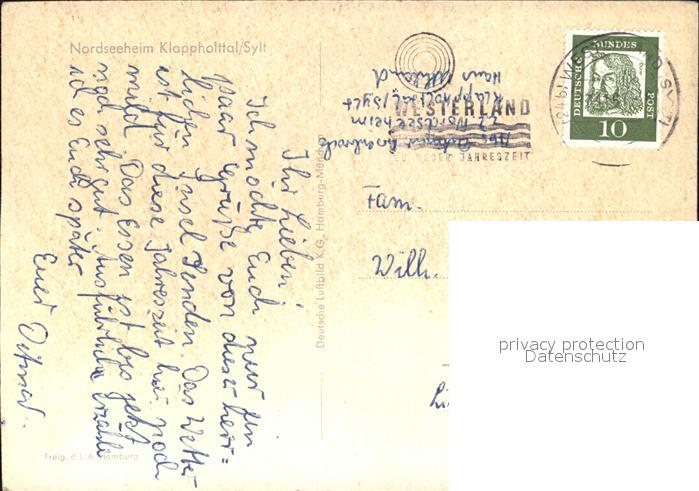 Nordseeheim Klappholttal/Sylt
Ihr Lieben!
Ich möchte Euch nur ein
paar Grüße von dieser herr=
lichen Insel senden. Das Wetter
ist für diese Jahreszeit hier noch
mild. Das Essen ist bis jetzt
sehr gut. Ausführlicher erzähle
ich es Euch später
Euer Detmar.
Freig. d. L.A. Hamburg
Deutsche Luftbild K.G., Hamburg-München
WESTERLAND
ZU JEDER JAHRESZEIT
Abs.
Nordseeheim
Klappholttal/Sylt
Haus
DEUTSCHE BUNDESPOST
10
Fam.
Wilh.
privacy protection
Datenschutz